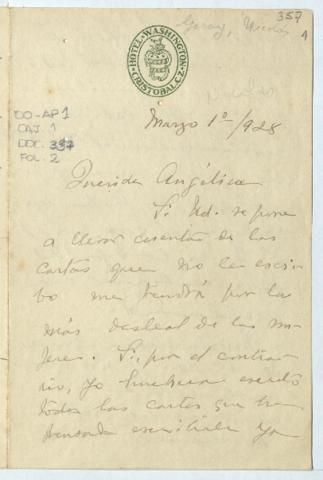 357
1
HOTEL WASHINGTON
CRISTOBAL CZ
DO-AP1
CAJ. 1
DOC. 337
FOL. 2
Marzo 1º/928
Querida Angélica
Si Ud. se pone
a llevar cuentas de las
cartas que no le escri-
bo me tendrá por la
más desleal de las mu-
jeres. Si, por el contra-
rio, yo hubiera escrito
todas las cartas que he
pensado escribirle ya